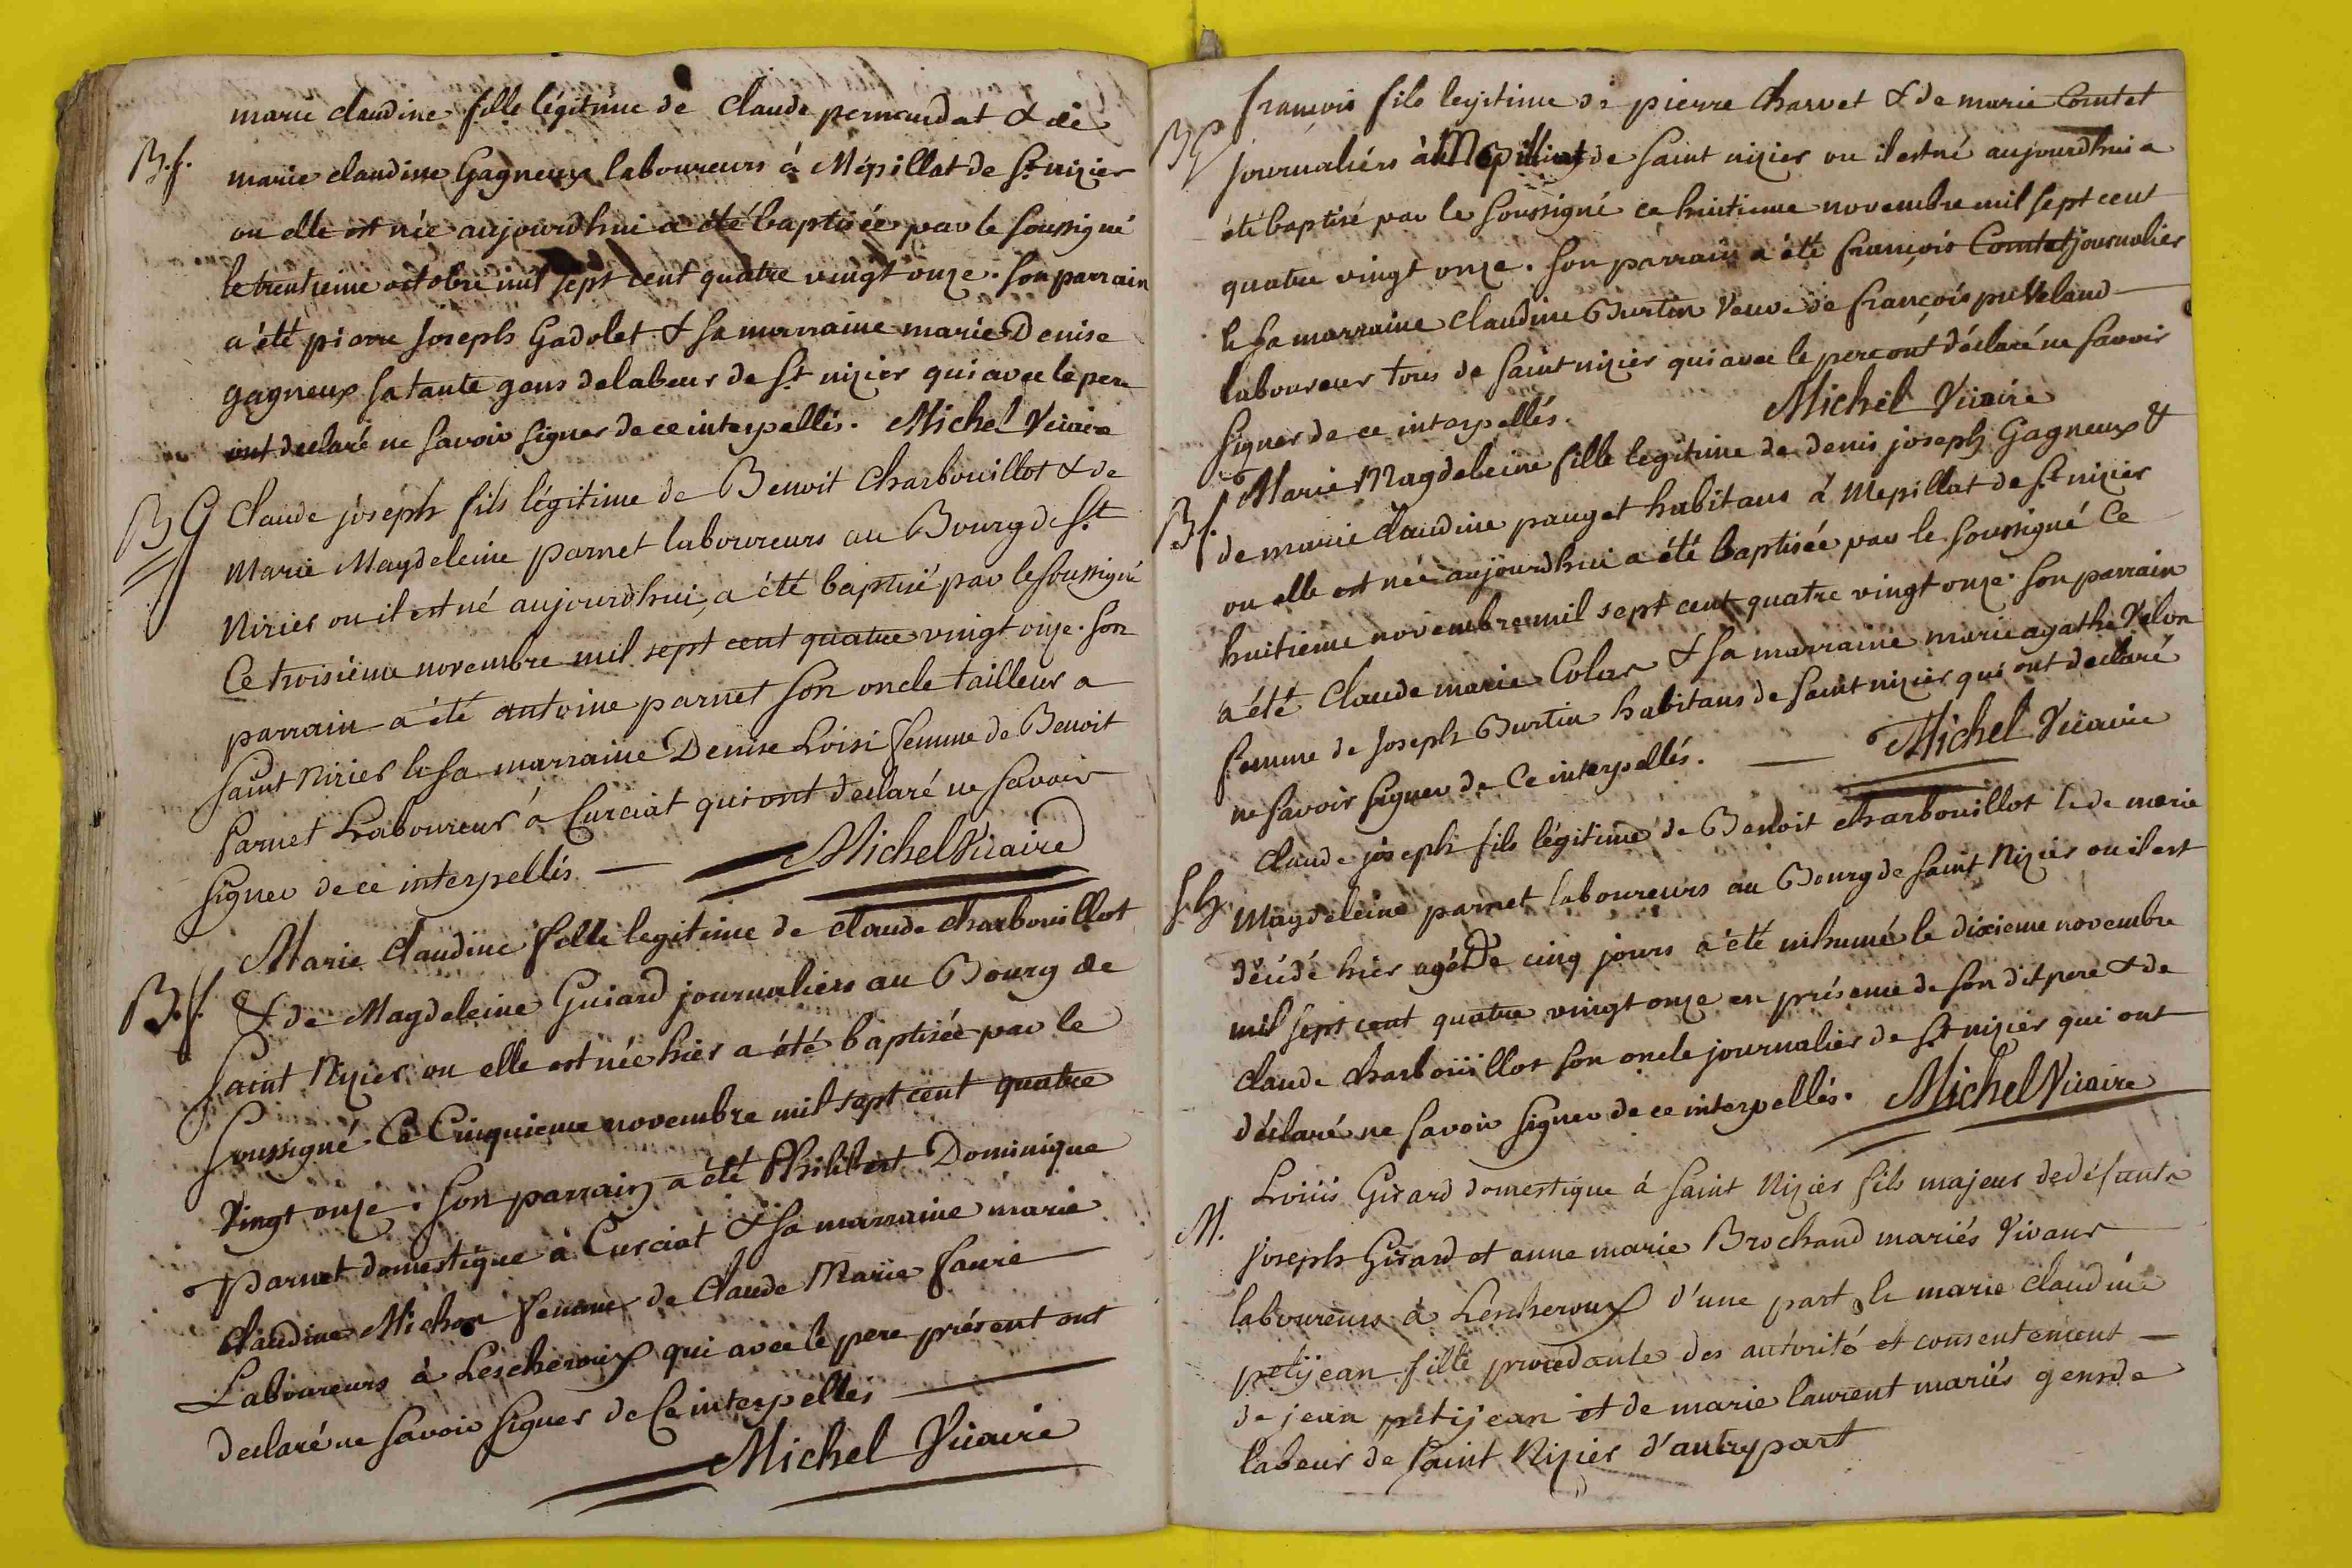 marie claudine fille légitime de Claude pernoudat & de
B.f.
marie claudine Gagneux laboureurs á Mépillat de St. nizier
ou elle est née aujourdhui a été baptisée par le soussigné
le trentieme octobre mil sept cent quatre vingt onze. son parrain
a été pierre joseph Gadolet & sa marraine marie Denise
gagneux sa tante gens delabeur de St nizier qui avec le pere
ont declaré ne savoir signer de ce interpellés. Michel Vicaire
BG
Claude joseph fils légitime de Benoit Charbouillot & de
Marie Magdeleine parnet laboureurs au Bourg de St
Nizier ou il est né aujourdhui, a été baptisé par le soussigné
Ce troisiéme novembre mil sept cent quatre vingt onze. son
parrain a été antoine parnet son oncle tailleur a
saint Nizier & sa marraine Denise Loisi femme de Benoit
Parnet Laboureur á Curciat qui ont declaré ne savoir
signer de ce interpellés — Michel Vicaire
Marie Claudine fille legitime de claude charbouillot
B.f.
& de Magdeleine Guiard journaliers au Bourg de
Saint Nizier ou elle est née hier a été baptisée par le
Soussigné. Ce Cinquieme novembre mil sept cent quatre
Vingt onze. son parrain a été Philibert Dominique
Parnet domestique à Curciat & sa marraine marie
Claudine Michon femme de Claude Marie faure
Laboureurs à Lescheroux qui avec le pere présent ont
declaré ne savoir signer de Ce interpellés —
Michel Vicaire
francois fils legitime de pierre Charvet & de marie Comtet
BG
journaliérs à Mépillat de saint nizier ou il est né aujourdhui a
été baptisé par le soussigné ce huitieme novembre mil sept cent
quatre vingt onze. son parrain a été françois Comtet journalier
& sa marraine claudine Burtin veuve de françois puveland
laboureur tous de saint nizier qui avec le pere ont déclaré ne savoir
signer de ce interpellés. Michel Vicaire
Marie Magdeleine fille legitime de denis joseph Gagneux &
B.f.
de marie claudine pauget habitans á Mepillat de St nizier
ou elle est née aujourdhui a été baptisée par le soussigné Ce
huitieme novembre mil sept cent quatre vingt onze. son parrain
a été Claude marie Colas & sa marraine marie agathe Velon
femme de Joseph Burtin habitans de saint nizier qui ont declaré
ne savoir signer de Ce interpellés. — Michel Vicaire
Claude joseph fils légitime de Benoit charbouillot & de marie
Magdeleine parnet laboureurs au Bourg de saint Nizier ou il est
décédé hier agé de cinq jours a été inhumé le dixieme novembre
mil sept cent quatre vingt onze en présence de son dit pere & de
claude charboüillot son oncle journalier de St nizier qui ont
déclaré ne savoir signer de ce interpellés. Michel Vicaire
Loüis Girard domestique á saint Nizier fils majeur de défunts
M.
Joseph Girard et anne marie Brochand mariés Vivans
laboureurs à Lescheroux d'une part & marie claudine
petijean fille procedante des autorité et consentement —
de jean petijean et de marie laurent mariés gens de
labeur de saint Nizier d'autre part